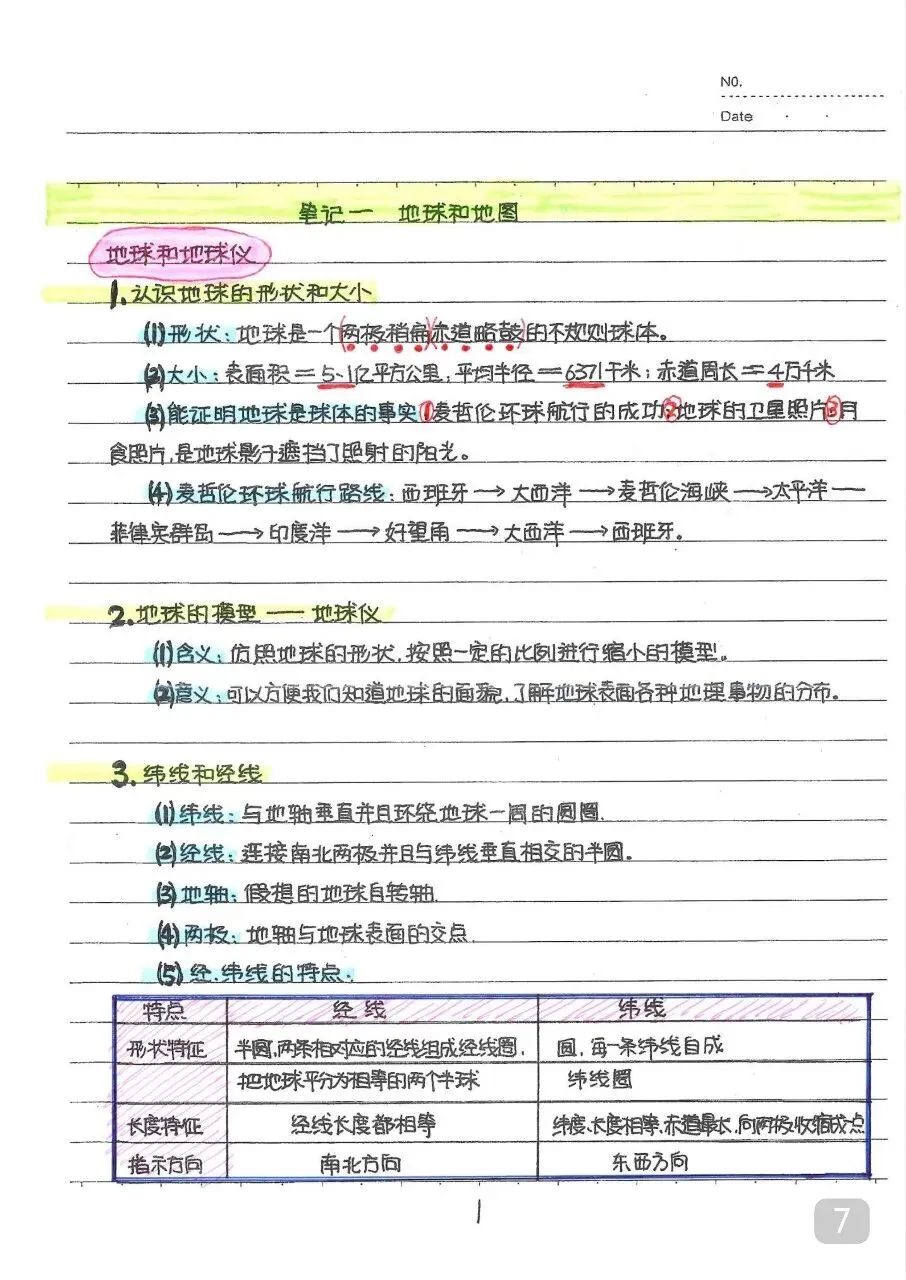 NO.
Date
笔记一 地球和地图
地球和地球仪
1.认识地球的形状和大小
(1)形状:地球是一个(两极稍扁)(赤道略鼓)的不规则球体。
(2)大小:表面积=5.1亿平方公里;平均半径=6371千米;赤道周长=4万千米
(3)能证明地球是球体的事实①麦哲伦环球航行的成功②地球的卫星照片③月
食照片,是地球影子遮挡了照射的阳光。
(4)麦哲伦环球航行路线:西班牙→大西洋→麦哲伦海峡→太平洋—
菲律宾群岛→印度洋→好望角→大西洋→西班牙。
2.地球的模型——地球仪
(1)含义:仿照地球的形状,按照一定的比例进行缩小的模型。
(2)意义:可以方便我们知道地球的面貌,了解地球表面各种地理事物的分布。
3.纬线和经线
(1)纬线:与地轴垂直并且环绕地球一周的圆圈.
(2)经线:连接南北两极并且与纬线垂直相交的半圆。
(3)地轴:假想的地球自转轴.
(4)两极:地轴与地球表面的交点.
(5)经.纬线的特点.
特点 经线 纬线
形状特征 半圆,两条相对应的经线组成经线圈. 圆,每一条纬线自成
把地球平分为相等的两个半球 纬线圈
长度特征 经线长度都相等 纬度、长度相等,赤道最长,向两极收缩成点
指示方向 南北方向 东西方向
1
7